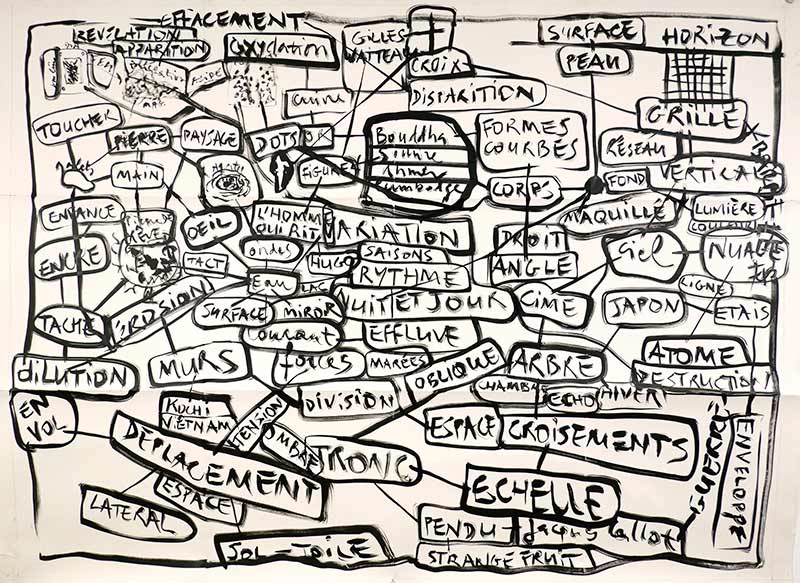 EFFACEMENT
RÉVÉLATION
APPARITION
OXYDATION
GILLES
WATTEAU
CROIX
SURFACE
HORIZON
PEAU
DISPARITION
GRILLE
TOUCHER
PIERRE
PAYSAGE
DOTS
Bouddha
FORMES
COURBES
RÉSEAU
MAIN
FIGURE
CORPS
FOND
VERTICAL
ENFANCE
OEIL
L'HOMME
QUI RIT
VARIATION
MAQUILLÉ
LUMIÈRE
COULEUR
ENCRE
TACT
ondes
HUGO
SAISONS
RYTHME
DROIT
ANGLE
Ciel
NUAGE
EAU
LAC
LIGNE
TACHE
ÉROSION
SURFACE
MIROIR
NUIT ET JOUR
CIME
JAPON
ETAIS
courant
EFFLUVE
DILUTION
MURS
forces
MARÉES
OBLIQUE
ARBRE
ATOME
DESTRUCTION
CHAMBRE
ECHO
HIVER
EN
VOL
KOCHI
VIETNAM
TENSION
DIVISION
ESPACE
CROISEMENTS
GUERRE
ENVELOPPE
DÉPLACEMENT
OMBRE
TRONC
ECHELLE
LATERAL
ESPACE
PENDU
Jacques Callot
SOL-TOILE
STRANGE FRUIT